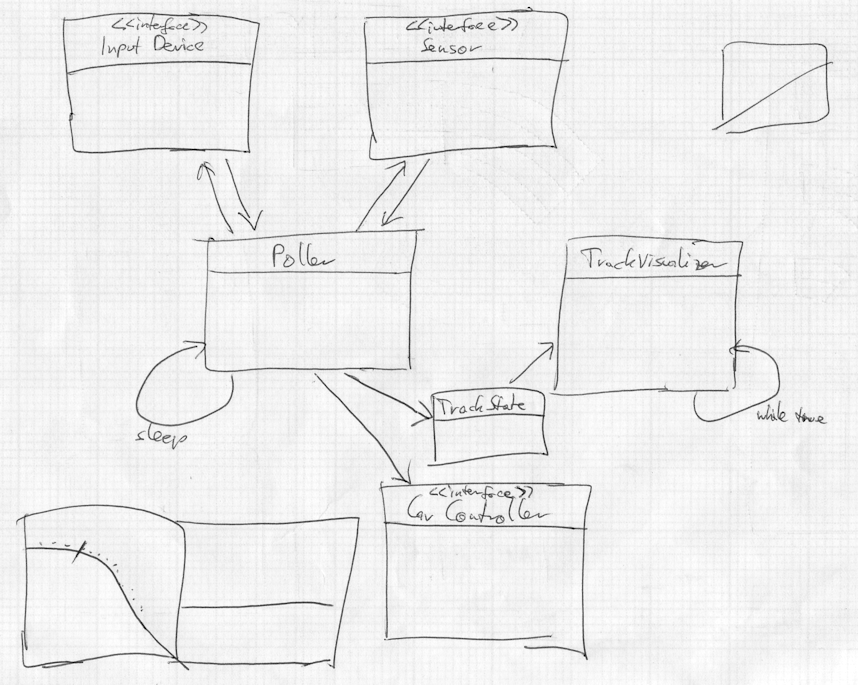 <<interface>>
Input Device
<<interface>>
Sensor
Poller
TrackVisualizer
sleep
TrackState
while true
<<interface>>
Car Controller